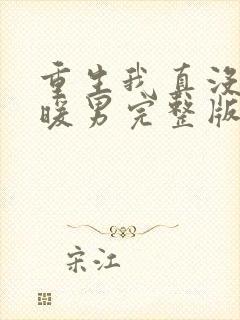 重生我真没
暖男完整版
宋江